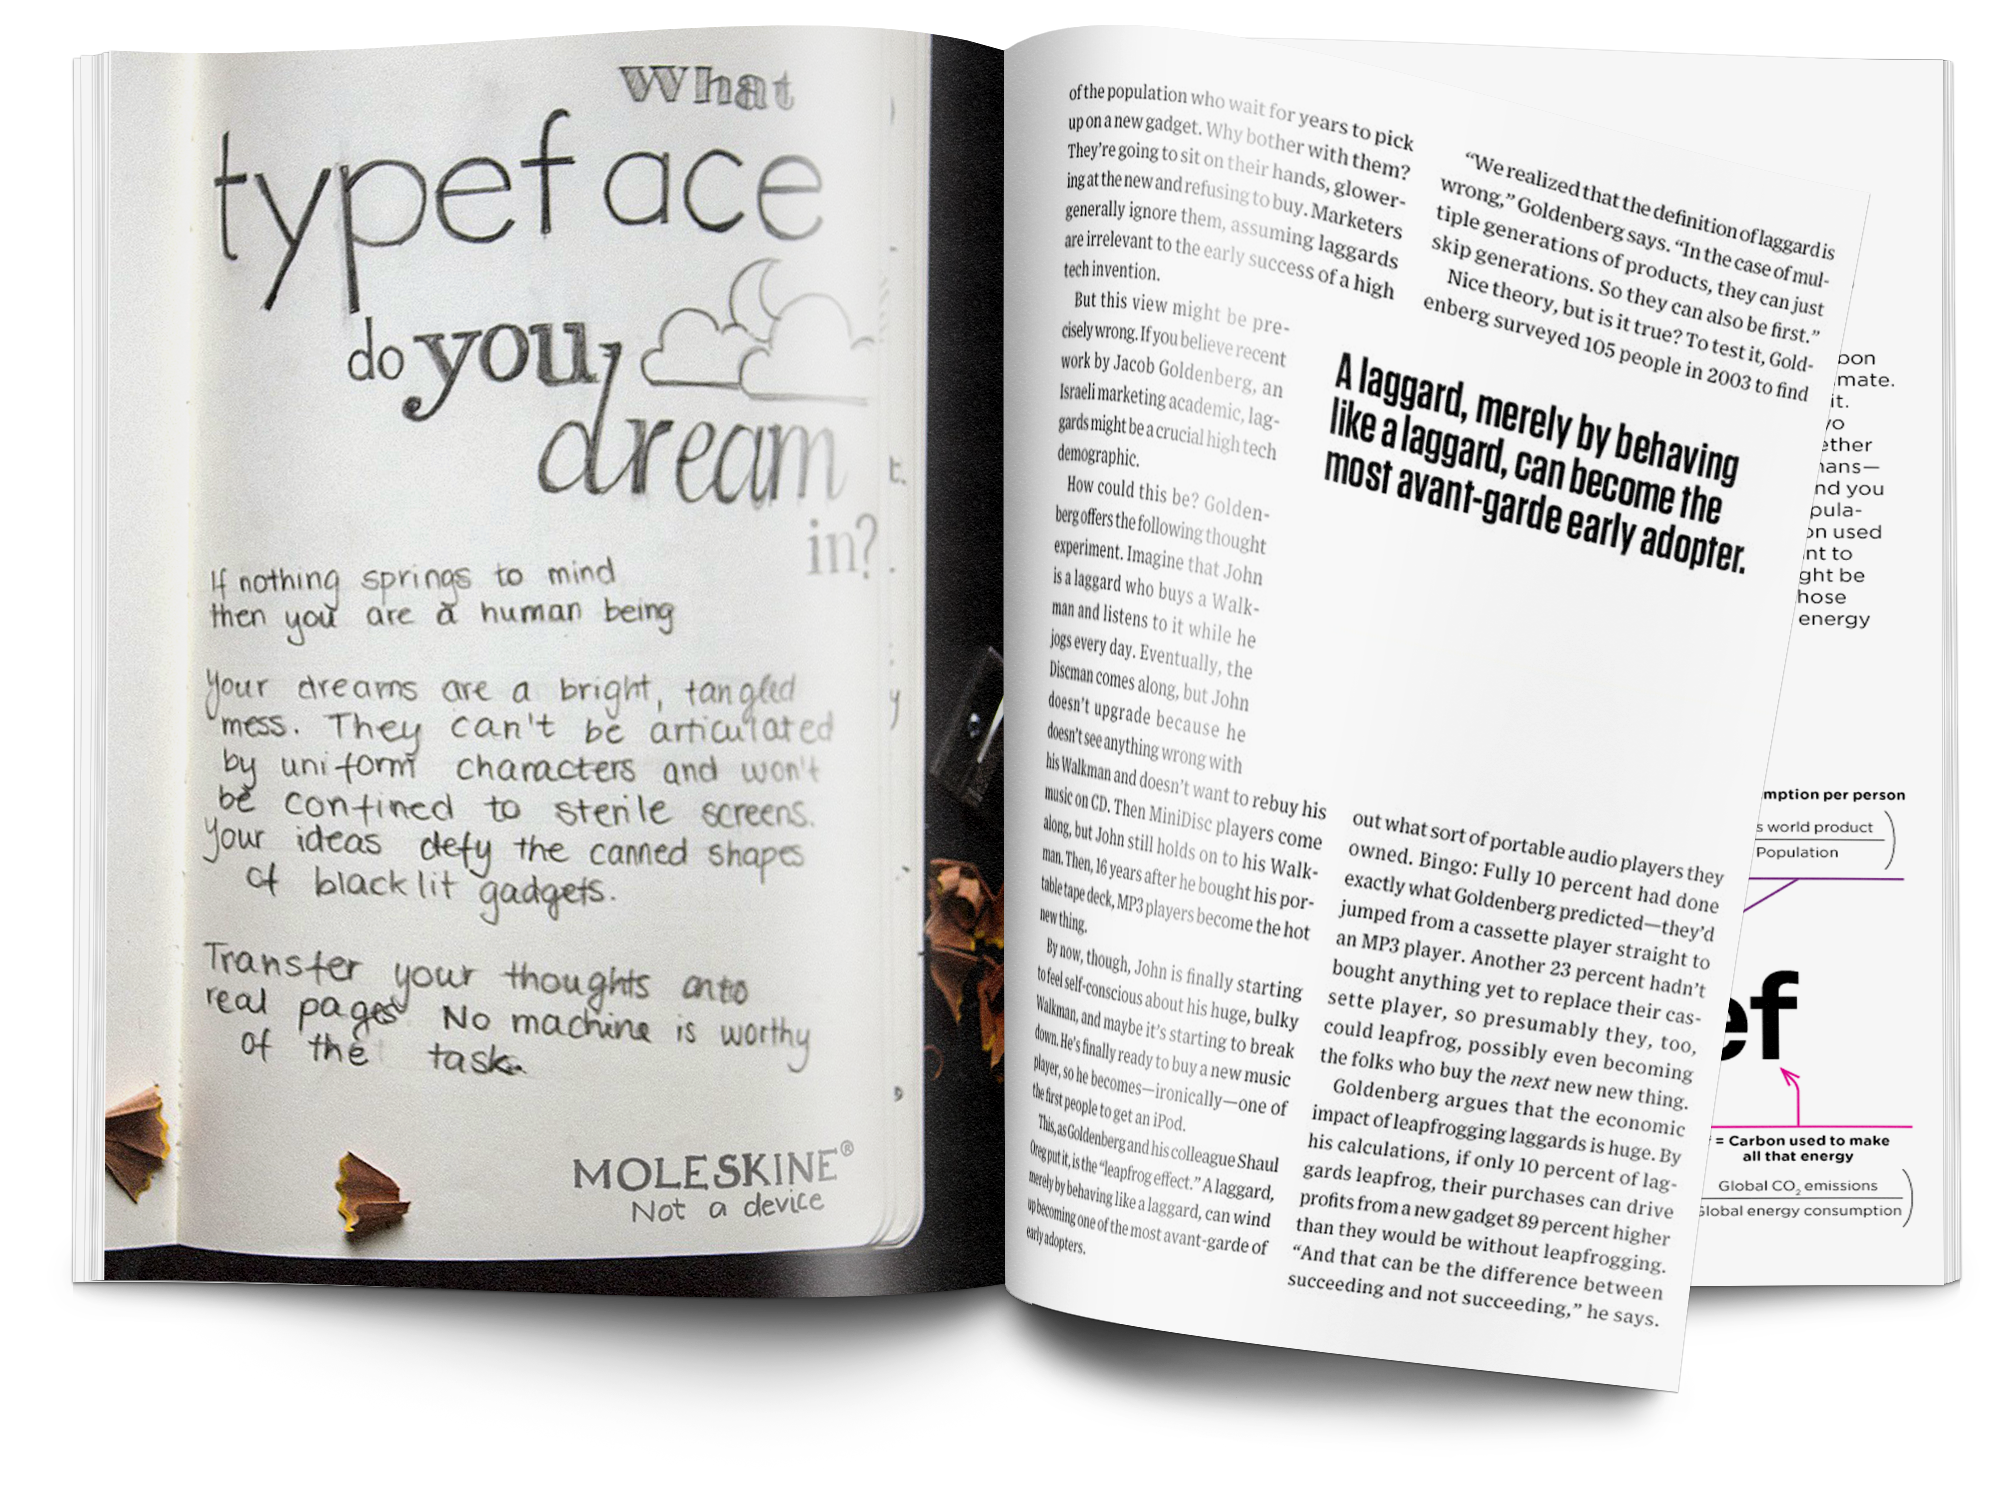 What
typeface
do you
dream
in?
If nothing springs to mind
then you are a human being
Your dreams are a bright, tangled
mess. They can't be articulated
by uniform characters and won't
be confined to sterile screens.
Your ideas defy the canned shapes
of blacklit gadgets.
Transfer your thoughts onto
real pages. No machine is worthy
of the task.
MOLESKINE®
Not a device
t.
y
of the population who wait for years to pick
up on a new gadget. Why bother with them?
They're going to sit on their hands, glower-
ing at the new and refusing to buy. Marketers
generally ignore them, assuming laggards
are irrelevant to the early success of a high
tech invention.
But this view might be pre-
cisely wrong. If you believe recent
work by Jacob Goldenberg, an
Israeli marketing academic, lag-
gards might be a crucial high tech
demographic.
How could this be? Golden-
berg offers the following thought
experiment. Imagine that John
is a laggard who buys a Walk-
man and listens to it while he
jogs every day. Eventually, the
Discman comes along, but John
doesn't upgrade because he
doesn't see anything wrong with
his Walkman and doesn't want to rebuy his
music on CD. Then MiniDisc players come
along, but John still holds on to his Walk-
man. Then, 16 years after he bought his por-
table tape deck, MP3 players become the hot
new thing.
By now, though, John is finally starting
to feel self-conscious about his huge, bulky
Walkman, and maybe it's starting to break
down. He's finally ready to buy a new music
player, so he becomes—ironically—one of
the first people to get an iPod.
This, as Goldenberg and his colleague Shaul
Oreg put it, is the “leapfrog effect.” A laggard,
merely by behaving like a laggard, can wind
up becoming one of the most avant-garde of
early adopters.
“We realized that the definition of laggard is
wrong,” Goldenberg says. “In the case of mul-
tiple generations of products, they can just
skip generations. So they can also be first.”
Nice theory, but is it true? To test it, Gold-
enberg surveyed 105 people in 2003 to find
A laggard, merely by behaving
like a laggard, can become the
most avant-garde early adopter.
out what sort of portable audio players they
owned. Bingo: Fully 10 percent had done
exactly what Goldenberg predicted—they'd
jumped from a cassette player straight to
an MP3 player. Another 23 percent hadn't
bought anything yet to replace their cas-
sette player, so presumably they, too,
could leapfrog, possibly even becoming
the folks who buy the next new new thing.
Goldenberg argues that the economic
impact of leapfrogging laggards is huge. By
his calculations, if only 10 percent of lag-
gards leapfrog, their purchases can drive
profits from a new gadget 89 percent higher
than they would be without leapfrogging.
“And that can be the difference between
succeeding and not succeeding,” he says.
bon
mate.
it.
vo
ether
nans—
nd you
pula-
on used
nt to
ght be
hose
energy
mption per person
s world product
Population
ef
= Carbon used to make
all that energy
Global CO₂ emissions
Global energy consumption